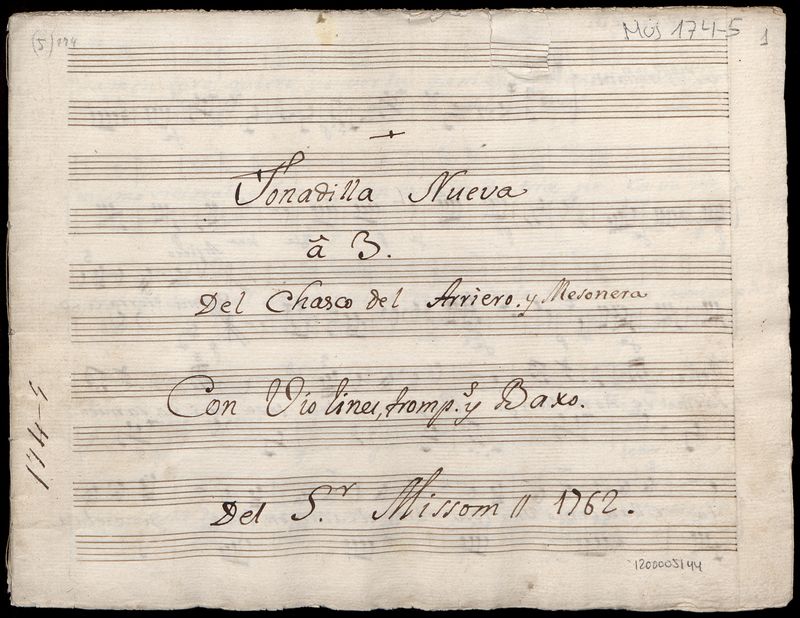 (5) 174
Mús 174-5
1
Tonadilla Nueva
â 3.
Del Chasco del Arriero. y Mesonera
Con Violines, tromp.s y Baxo.
174-5
Del S.r Missom 1762.
1200005144